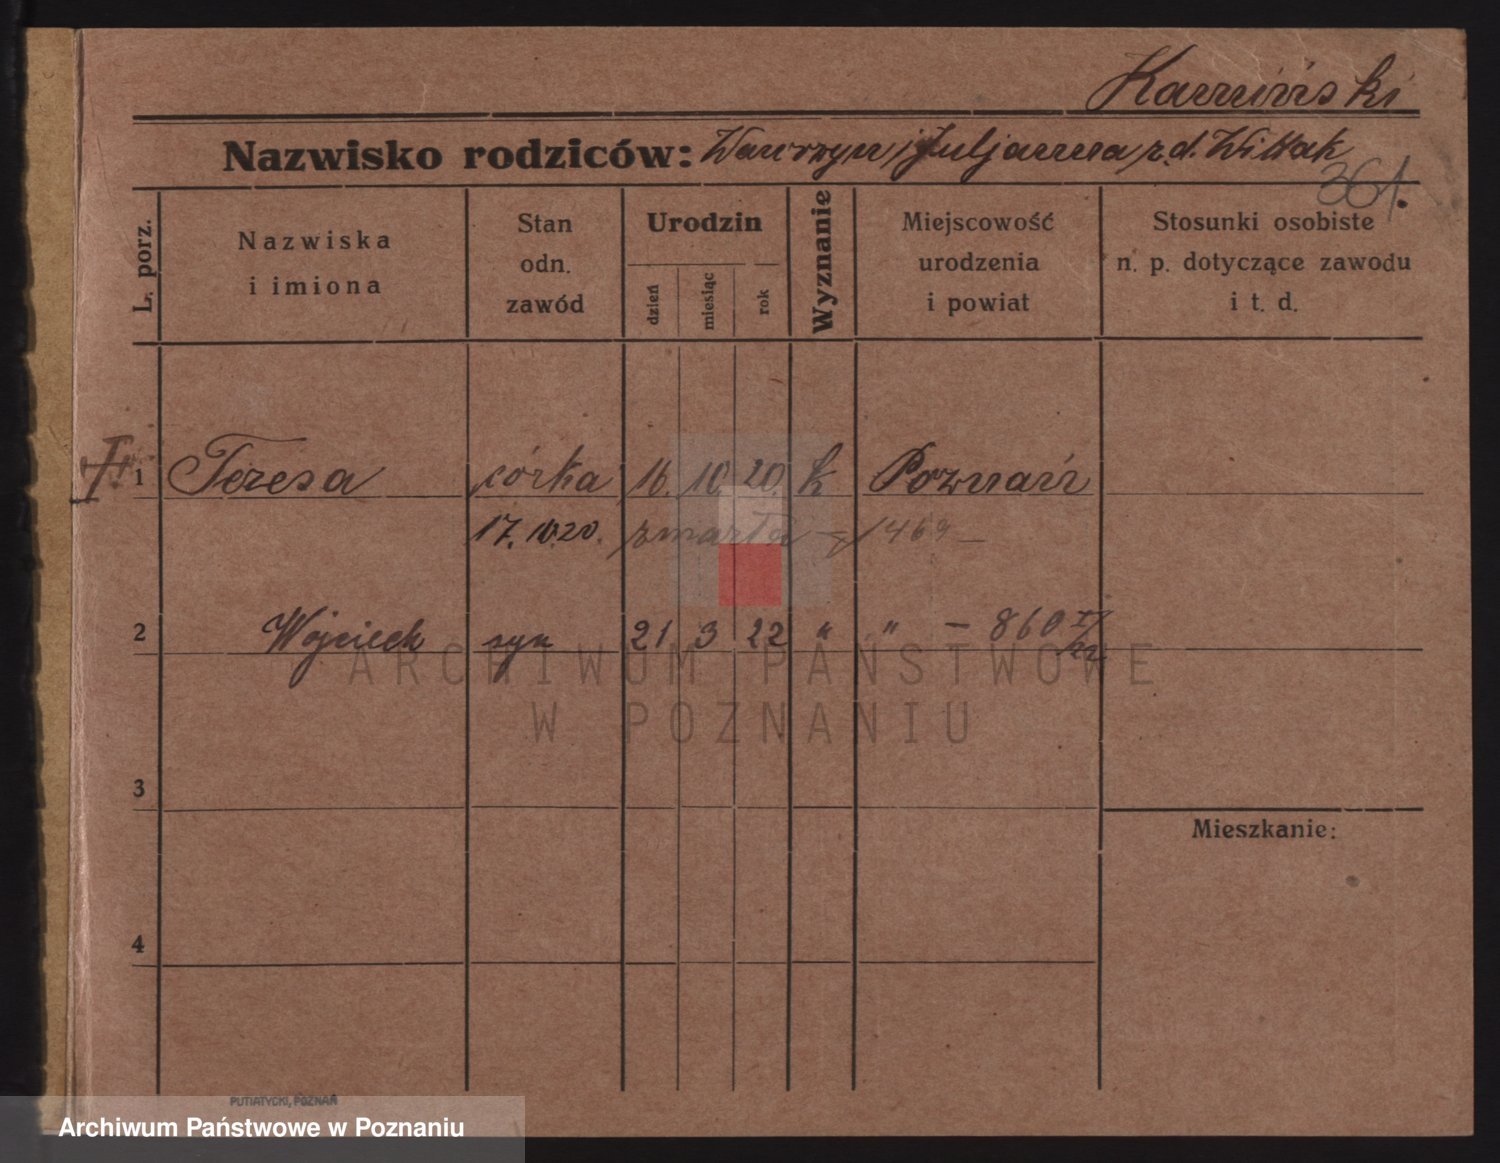 Kamiński
Nazwisko rodziców: Wawrzyn i Juljanna z d. Wittak
361.
L. porz.
Nazwiska
i imiona
Stan
odn.
zawód
Urodzin
dzień
miesiąc
rok
Wyznanie
Miejscowość
urodzenia
i powiat
Stosunki osobiste
n. p. dotyczące zawodu
i t. d.
1 Teresa córka 16. 10 20. k Poznań
17. 10. 20. zmarła - 1469 -
2 Wojciech syn 21 3 22 " " - 860
ARCHIWUM PAŃSTWOWE
W POZNANIU
3
Mieszkanie:
4
PUTIATYCKI, POZNAŃ
Archiwum Państwowe w Poznaniu